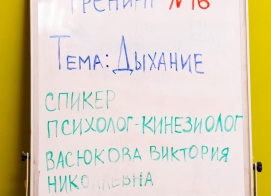 ТРЕНИНГ №16
ТЕМА: ДЫХАНИЕ
СПИКЕР
ПСИХОЛОГ-КИНЕЗИОЛОГ
ВАСЮКОВА ВИКТОРИЯ
НИКОЛАЕВНА